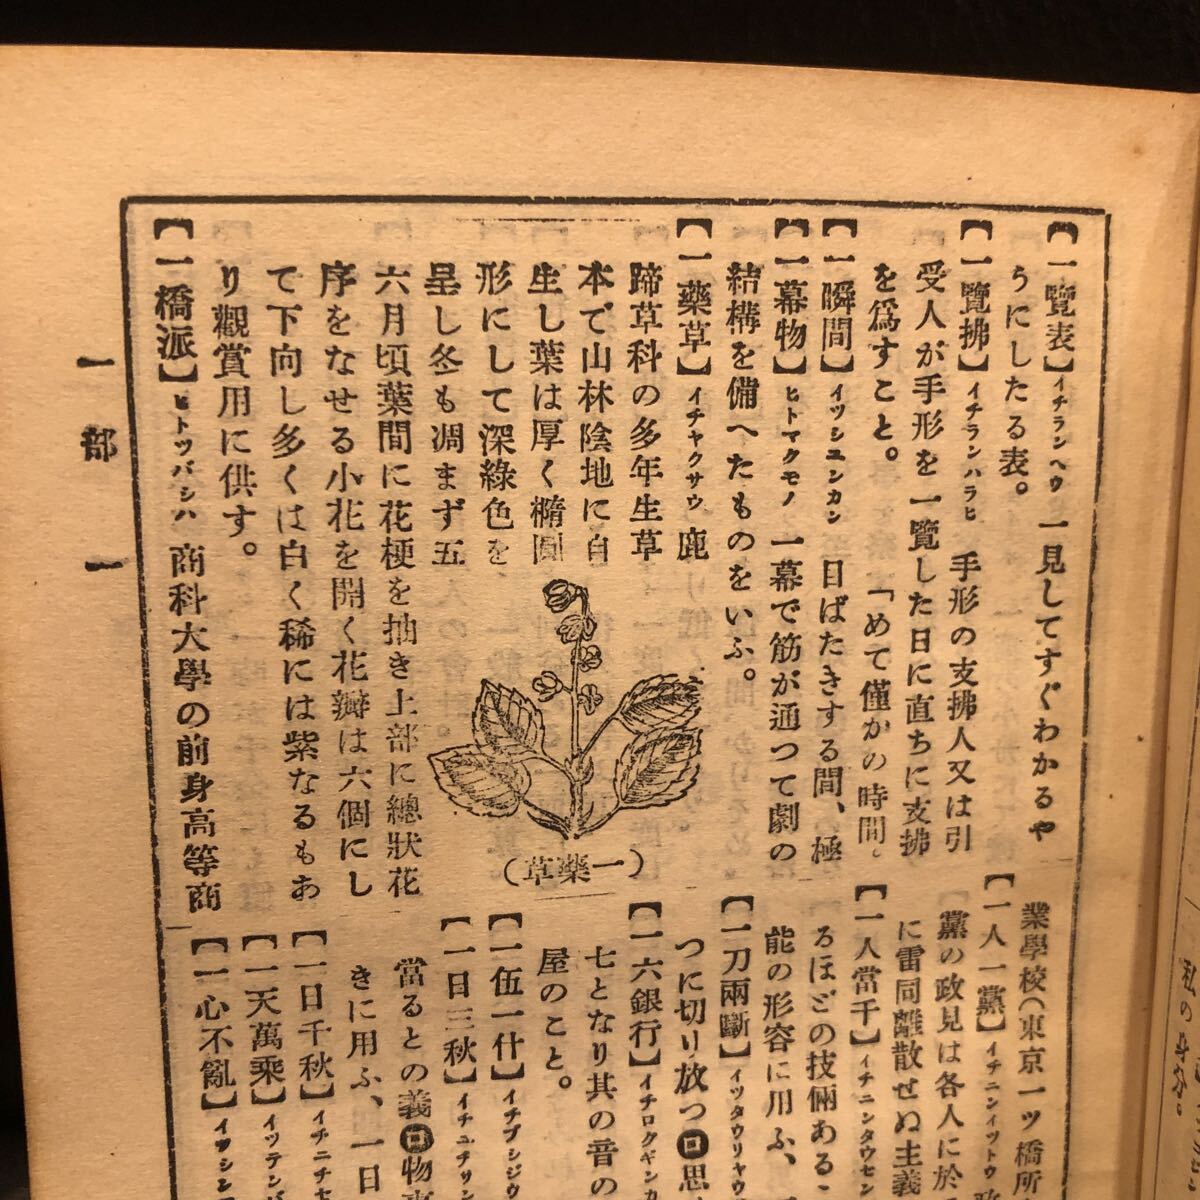 【一覽表】イチランヘウ 一見してすぐわかるや
うにしたる表。
【一覽拂】イチランハラヒ 手形の支拂人又は引
受人が手形を一覽した日に直ちに支拂
を爲すこと。
【一瞬間】イツシユンカン 目ばたきする間、極
めて僅かの時間。
【一幕物】ヒトマクモノ 一幕で筋が通つて劇の
結構を備へたものをいふ。
【一藥草】イチヤクサウ 鹿
蹄草科の多年生草
本で山林陰地に自
生し葉は厚く橢圓
形にして深綠色を
呈し冬も凋まず五
六月頃葉間に花梗を抽き上部に總狀花
序をなせる小花を開く花瓣は六個にし
て下向し多くは白く稀には紫なるもあ
り觀賞用に供す。
(一藥草)
【一橋派】ヒトツバシハ 商科大學の前身高等商
業學校(東京一ツ橋所
【一人一黨】イチニンイツトウ
黨の政見は各人に於
に雷同離散せぬ主義
【一人當千】イチニンタウセン
るほどの技倆ある
能の形容に用ふ、
【一刀兩斷】イツタウリヤウ
つに切り放つ㊁思
【一六銀行】イチロクギンカ
七となり其の音の
屋のこと。
【一伍一什】イチブシジウ
【一日三秋】イチニチサン
當るとの義㊁物事
きに用ふ、一日
【一日千秋】イチニチセ
【一天萬乘】イツテンバ
【一心不亂】イツシン
一部 一
私の身分。